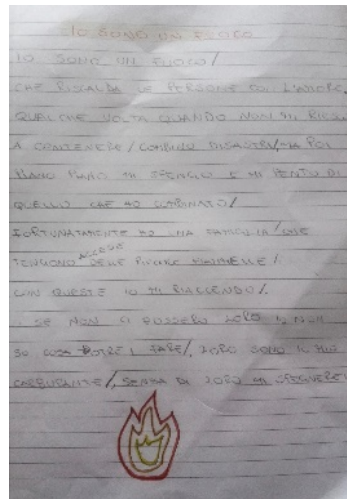 IO SONO UN FUOCO
IO SONO UN FUOCO/
CHE RISCALDA LE PERSONE CON L'AMORE.
QUALCHE VOLTA QUANDO NON MI RIESCO
A CONTENERE/COMBINO DISASTRI/MA POI
PIANO PIANO MI SPENGO E MI PENTO DI
QUELLO CHE HO COMBINATO/
FORTUNATAMENTE HO UNA FAMIGLIA/CHE
TENGONO ACCESE DELLE PICCOLE FIAMMELLE/
CON QUESTE IO MI RIACCENDO/.
SE NON CI FOSSERO LORO IO NON
SO COSA POTREI FARE/, LORO SONO IL MIO
CARBURANTE/, SENZA DI LORO MI SPEGNEREI